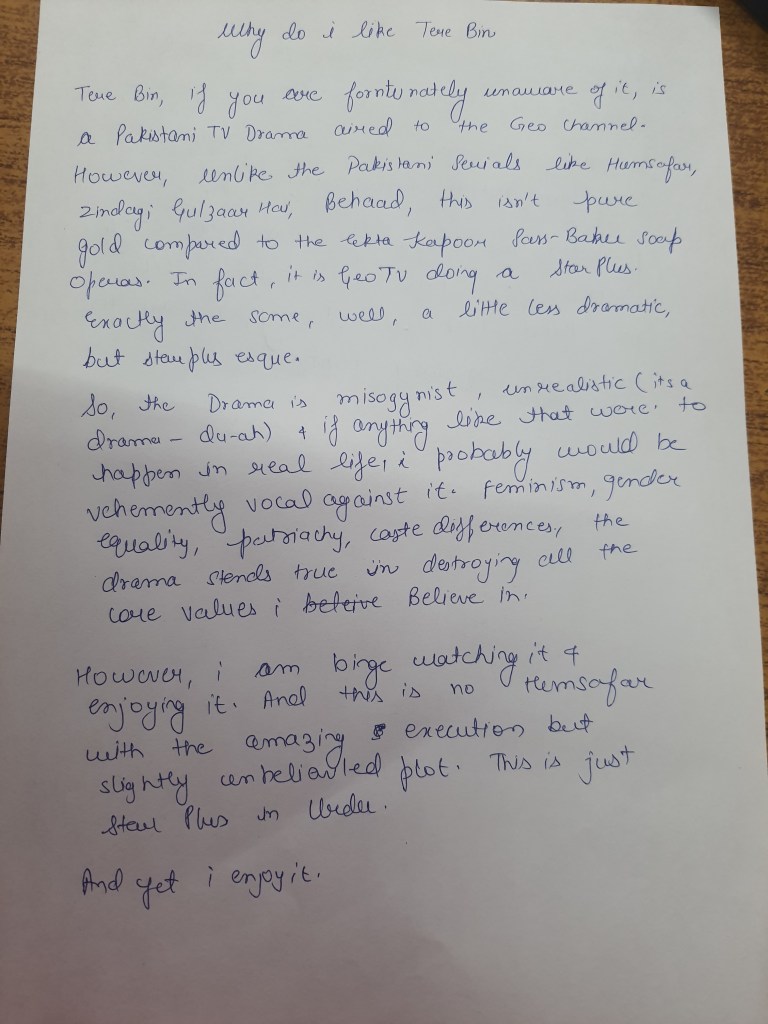 Why do i like Tere Bin
Tere Bin, if you are forntunately unaware of it, is
a Pakistani TV Drama aired to the Geo channel.
However, unlike the Pakistani Serials like Humsafar,
Zindagi Gulzaar Hai, Behaad, this isn't pure
gold compared to the Ekta Kapoor Sass-Bahu soap
Operas. In fact, it is GeoTV doing a Star Plus.
Exactly the same, well, a little less dramatic,
but star plus esque.
So, the Drama is misogynist, unrealistic (its a
drama - du-ah) & if anything like that were to
happen in real life, i probably would be
vehemently vocal against it. Feminism, gender
equality, patriachy, caste differences, the
drama stends true in destroying all the
core values i beleive Believe in.
However, i am binge watching it &
enjoying it. And this is no Humsafar
with the amazing execution but
slightly plot. This is just
Star Plus in Urdu.
And yet i enjoy it.